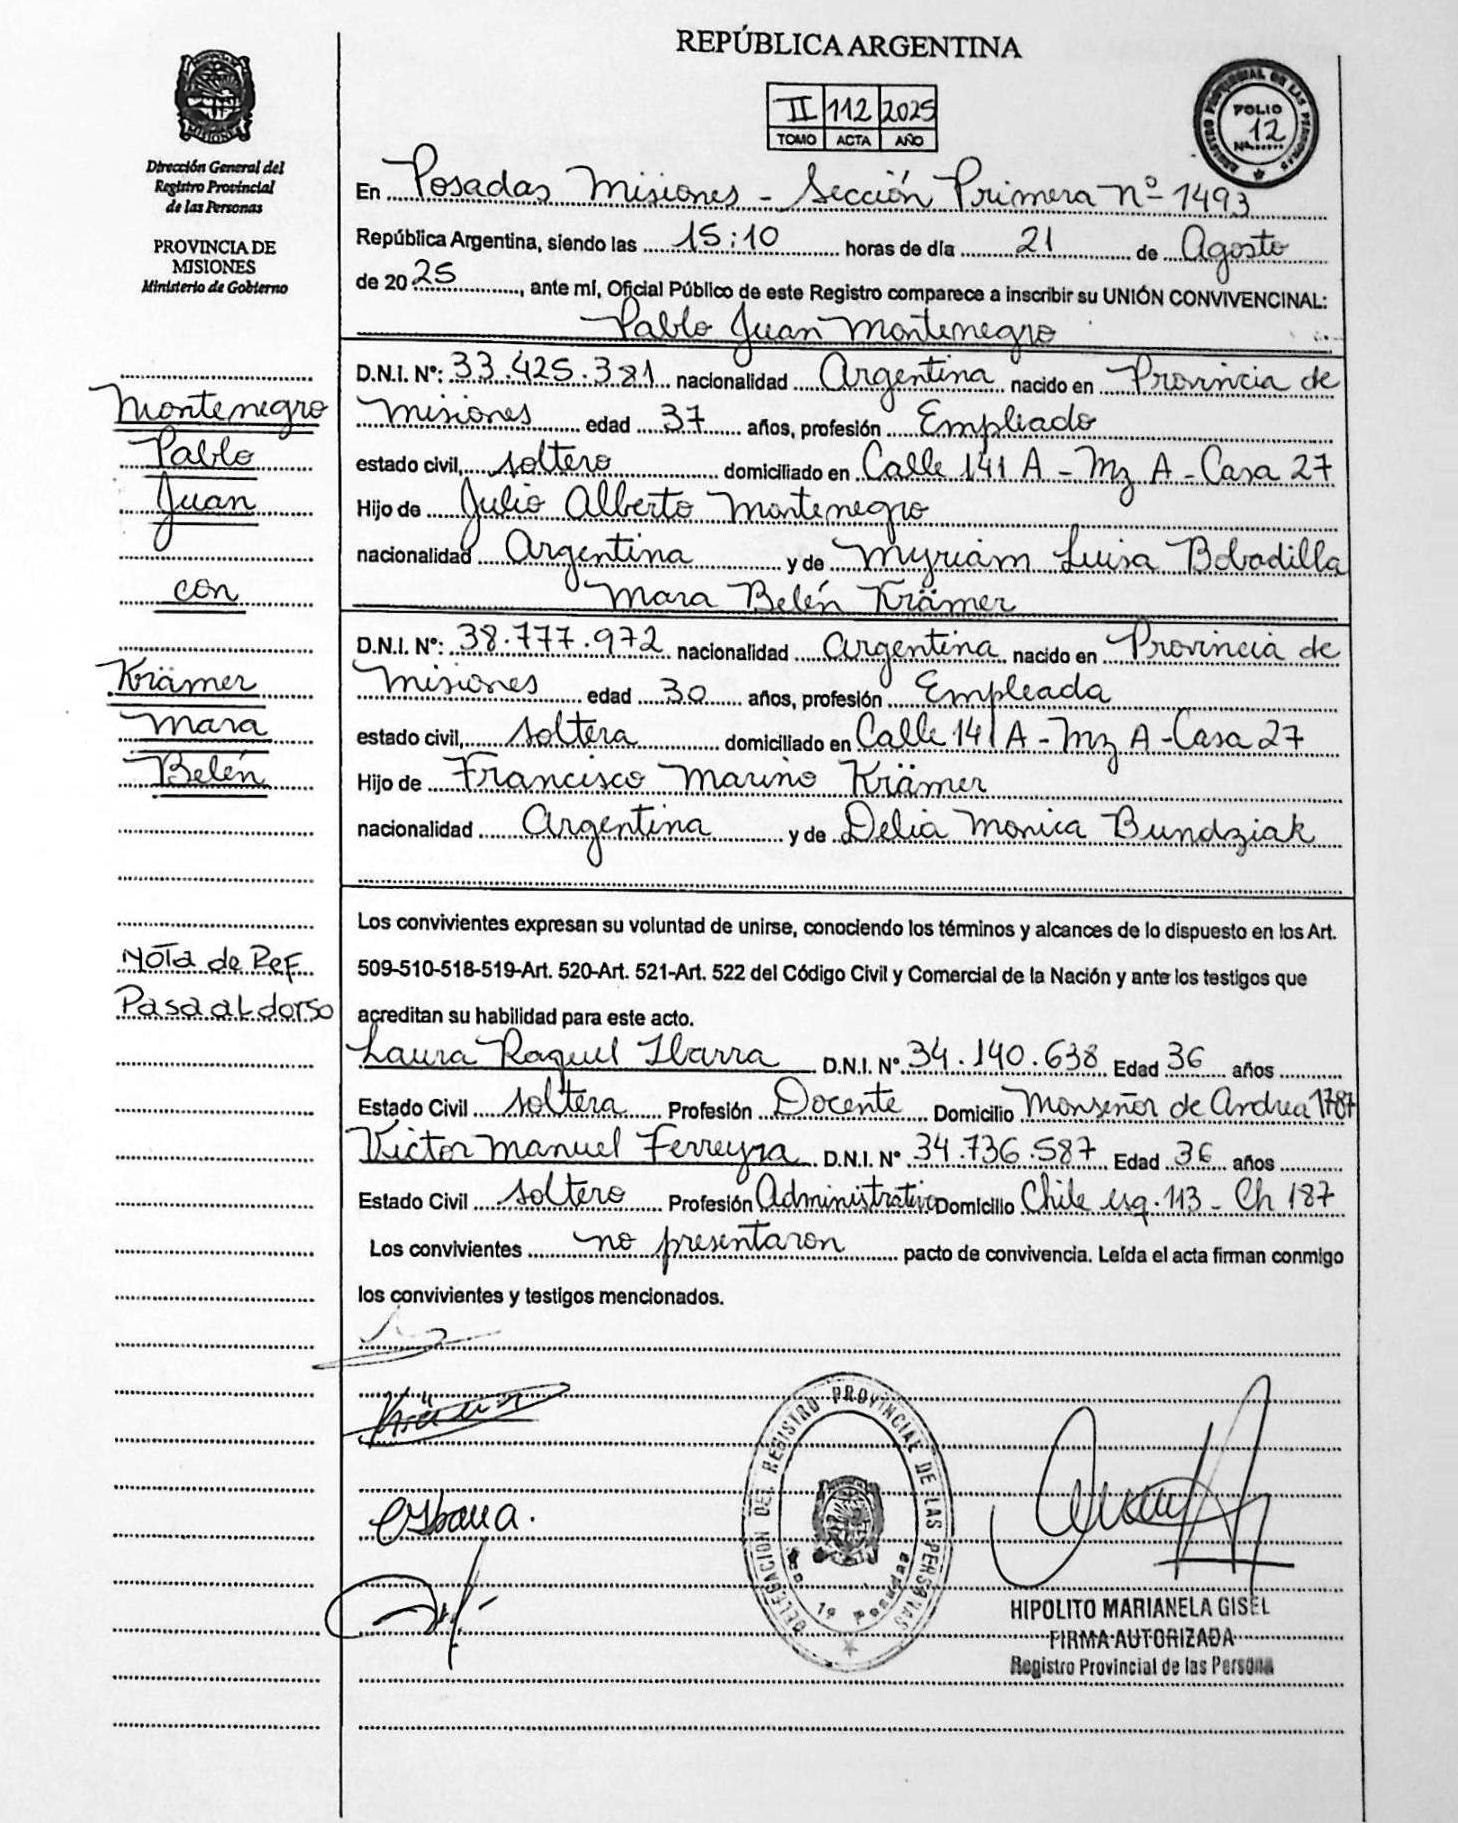 REPÚBLICA ARGENTINA
II 112 2025
TOMO ACTA AÑO
REGISTRO PROVINCIAL DE LAS PERSONAS
FOLIO
12
Nº
MISIONES
Dirección General del
Registro Provincial
de las Personas
PROVINCIA DE
MISIONES
Ministerio de Gobierno
Montenegro
Pablo
Juan
con
Krämer
Mara
Belén
Nota de Ref
Pasa al dorso
En Posadas Misiones - Sección Primera Nº 1493
República Argentina, siendo las 15:10 horas de día 21 de Agosto
de 2025, ante mí, Oficial Público de este Registro comparece a inscribir su UNIÓN CONVIVENCINAL:
Pablo Juan Montenegro
D.N.I. Nº: 33.425.381 nacionalidad Argentina nacido en Provincia de
Misiones edad 37 años, profesión Empleado
estado civil, soltero domiciliado en Calle 141 A - Mz A - Casa 27
Hijo de Julio Alberto Montenegro
nacionalidad Argentina y de Myriam Luisa Bobadilla
Mara Belén Krämer
D.N.I. Nº: 38.777.972 nacionalidad Argentina nacido en Provincia de
Misiones edad 30 años, profesión Empleada
estado civil, soltera domiciliado en Calle 141 A - Mz A - Casa 27
Hijo de Francisco Marino Krämer
nacionalidad Argentina y de Delia Monica Bundziak
Los convivientes expresan su voluntad de unirse, conociendo los términos y alcances de lo dispuesto en los Art.
509-510-518-519-Art. 520-Art. 521-Art. 522 del Código Civil y Comercial de la Nación y ante los testigos que
acreditan su habilidad para este acto.
Laura Raquel Ibarra D.N.I. Nº 34.140.638 Edad 36 años
Estado Civil soltera Profesión Docente Domicilio Monseñor de Andrea 1787
Victor Manuel Ferreyra D.N.I. Nº 34.736.587 Edad 36 años
Estado Civil soltero Profesión Administrativo Domicilio Chile esq. 113 - Ch 187
Los convivientes no presentaron pacto de convivencia. Leída el acta firman conmigo
los convivientes y testigos mencionados.
DELEGACION DEL REGISTRO PROVINCIAL DE LAS PERSONAS
1ª Posadas
HIPOLITO MARIANELA GISEL
FIRMA AUTORIZADA
Registro Provincial de las Persona